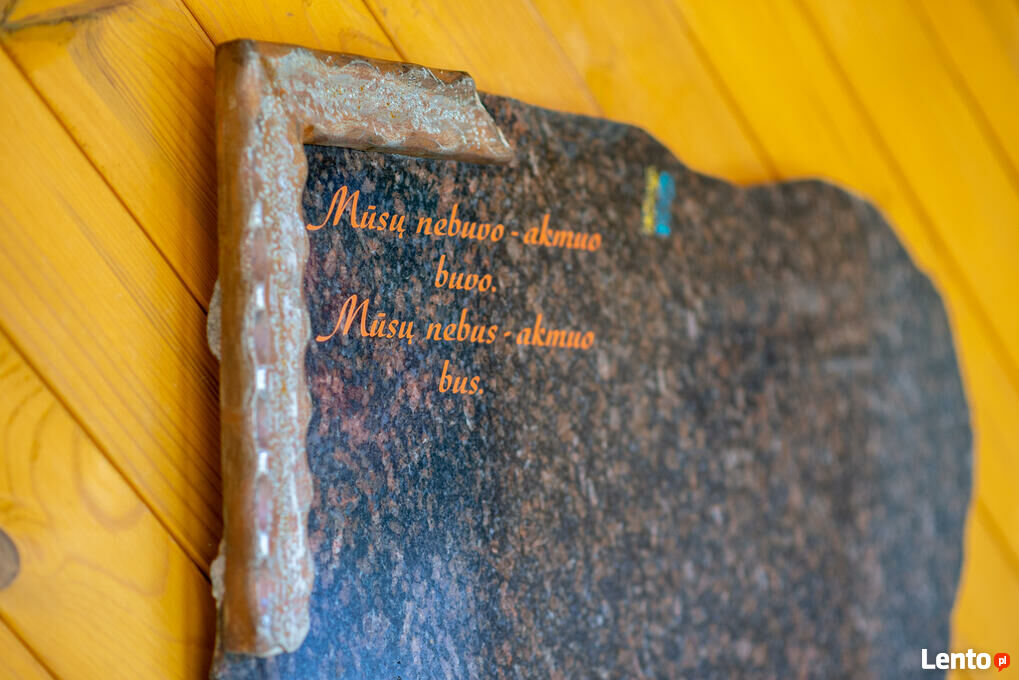 Mūsų nebuvo - akmuo
buvo.
Mūsų nebus - akmuo
bus.
Lento pl